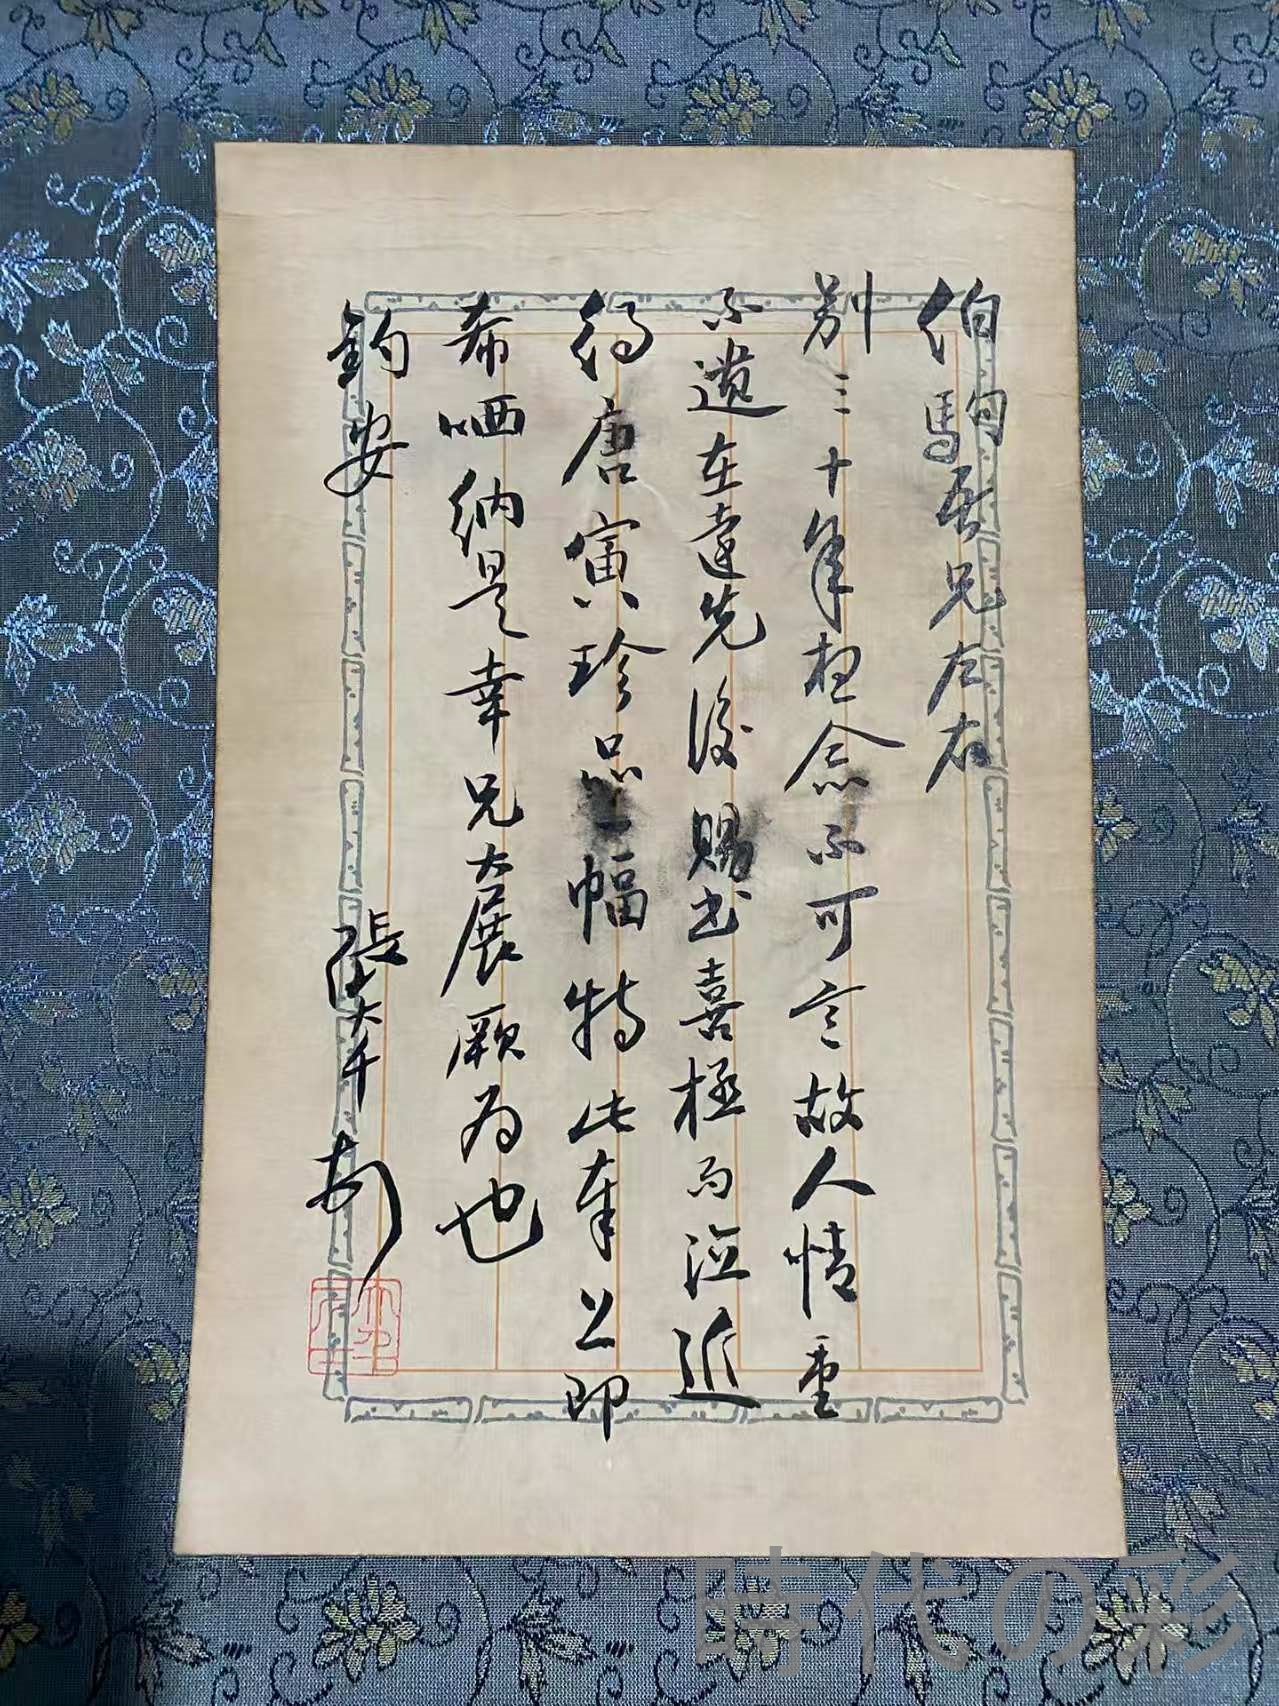 伯駒吾兄左右
別三十年想念不可言故人情重
不遺在遠先後賜書喜極而泣近
得唐寅珍品一幅特此奉上即
希哂納是幸兄大展願為也
鈞安
張大千
時代の彩